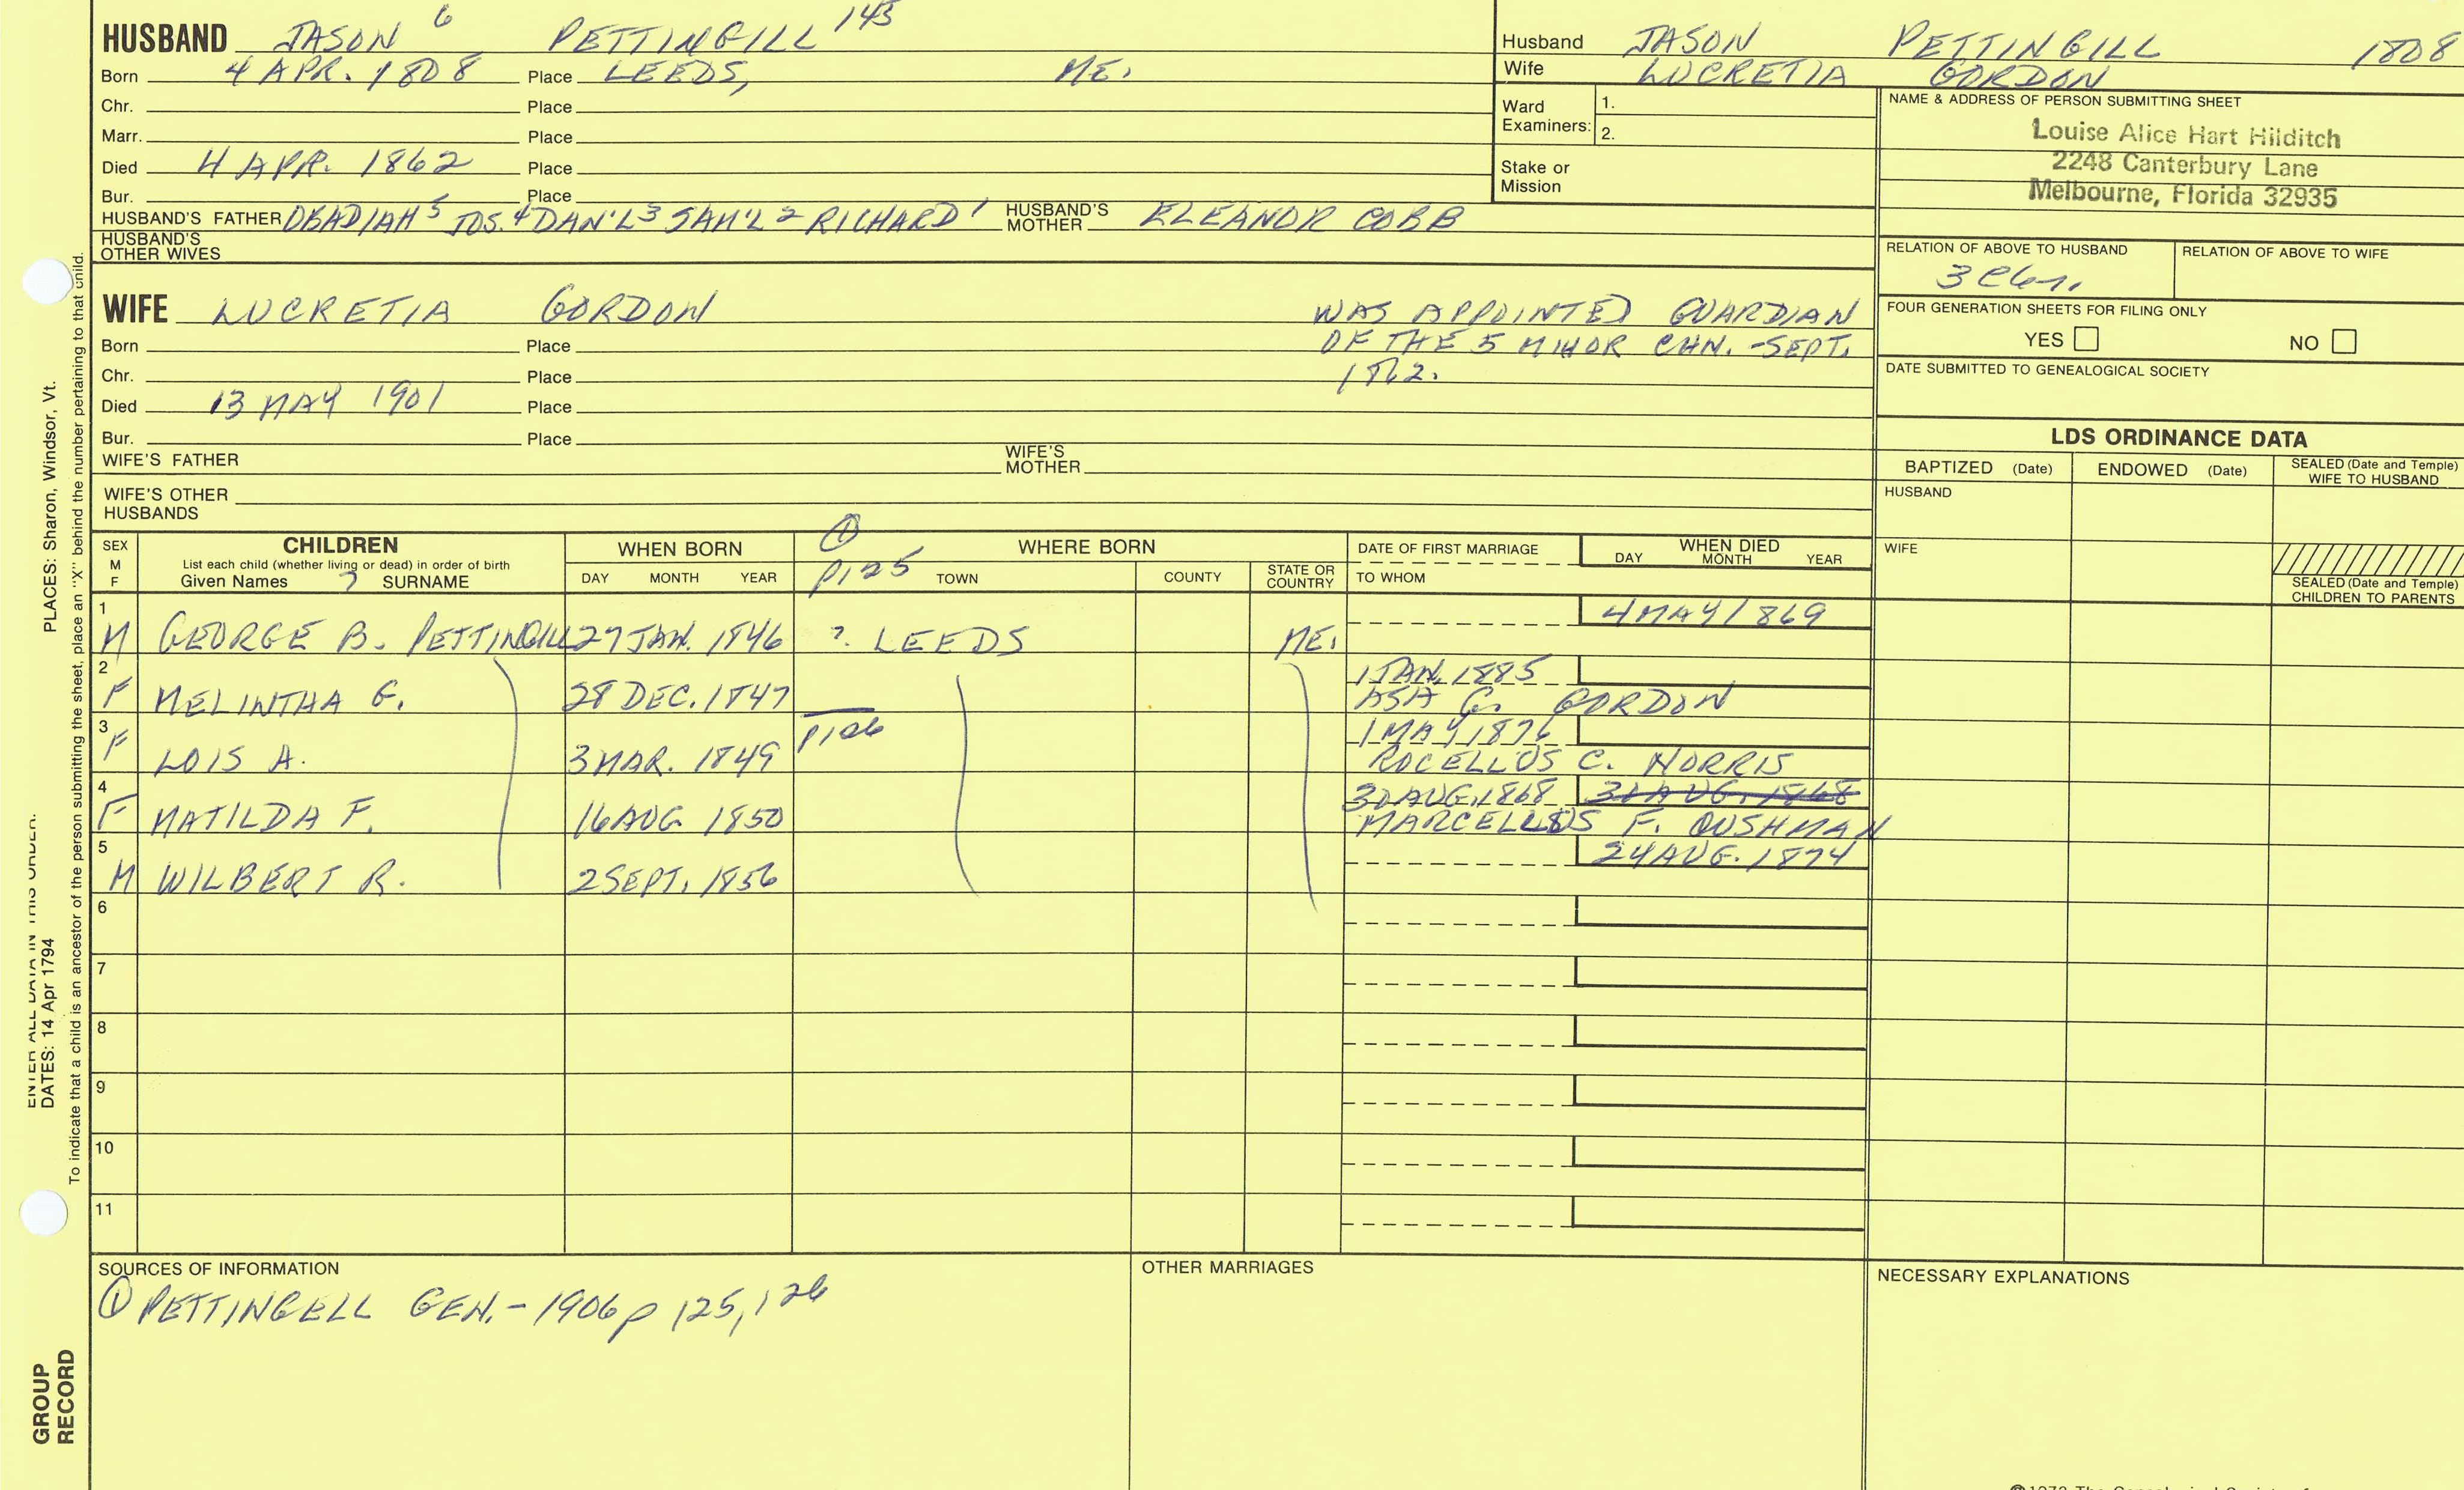 HUSBAND JASON 6 PETTINGILL 143
Born 4 APR. 1808 Place LEEDS, ME.
Chr. Place
Marr. Place
Died 4 APR. 1862 Place
Bur. Place
HUSBAND'S FATHER OBADIAH 5 JOS. 4 DAN'L 3 SAM'L 2 RICHARD 1 HUSBAND'S MOTHER ELEANOR COBB
HUSBAND'S OTHER WIVES
WIFE LUCRETIA GORDON WAS APPOINTED GUARDIAN
Born Place OF THE 5 MINOR CHN. - SEPT.
Chr. Place 1862.
Died 13 MAY 1901 Place
Bur. Place
WIFE'S FATHER WIFE'S MOTHER
WIFE'S OTHER HUSBANDS
Husband JASON PETTINGILL 1808
Wife LUCRETIA GORDON
Ward Examiners: 1.
2.
Stake or Mission
NAME & ADDRESS OF PERSON SUBMITTING SHEET
Louise Alice Hart Hilditch
2248 Canterbury Lane
Melbourne, Florida 32935
RELATION OF ABOVE TO HUSBAND RELATION OF ABOVE TO WIFE
FOUR GENERATION SHEETS FOR FILING ONLY
YES NO
DATE SUBMITTED TO GENEALOGICAL SOCIETY
LDS ORDINANCE DATA
BAPTIZED (Date) ENDOWED (Date) SEALED (Date and Temple) WIFE TO HUSBAND
HUSBAND
WIFE
SEALED (Date and Temple) CHILDREN TO PARENTS
SEX M F
CHILDREN
List each child (whether living or dead) in order of birth
Given Names ? SURNAME
WHEN BORN
DAY MONTH YEAR
① P125
WHERE BORN
TOWN COUNTY STATE OR COUNTRY
DATE OF FIRST MARRIAGE
TO WHOM
WHEN DIED
DAY MONTH YEAR
1 4 MAY 1869
M GEORGE B. PETTINGILL 27 JAN. 1846 ? LEEDS ME.
2 1 JAN. 1885
F MELINTHA G. 28 DEC. 1847 ASA G. GORDON
3 P126 1 MAY 1876
F LOIS A. 3 MAR. 1849 ROCELLUS C. NORRIS
4 30 AUG. 1868 30 AUG. 1868
F MATILDA F. 16 AUG 1850 MARCELLUS F. CUSHMAN
5 24 AUG. 1874
M WILBERT R. 2 SEPT. 1856
6
7
8
9
10
11
SOURCES OF INFORMATION
① PETTINGELL GEN. - 1906 p 125, 126
OTHER MARRIAGES
NECESSARY EXPLANATIONS
PLACES: Sharon, Windsor, Vt.
ENTER ALL DATA IN THIS ORDER:
DATES: 14 Apr 1794
To indicate that a child is an ancestor of the person submitting the sheet, place an "X" behind the number pertaining to that child.
GROUP
RECORD